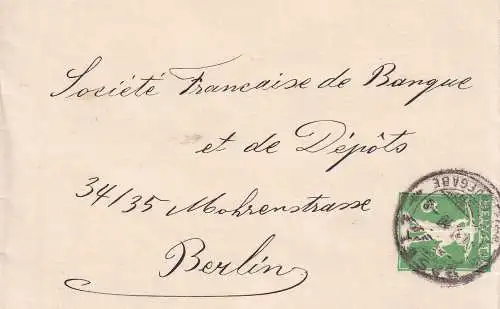 Société Francaise de Banque
et de Dépôts
34/35 Mohrenstrasse
Berlin